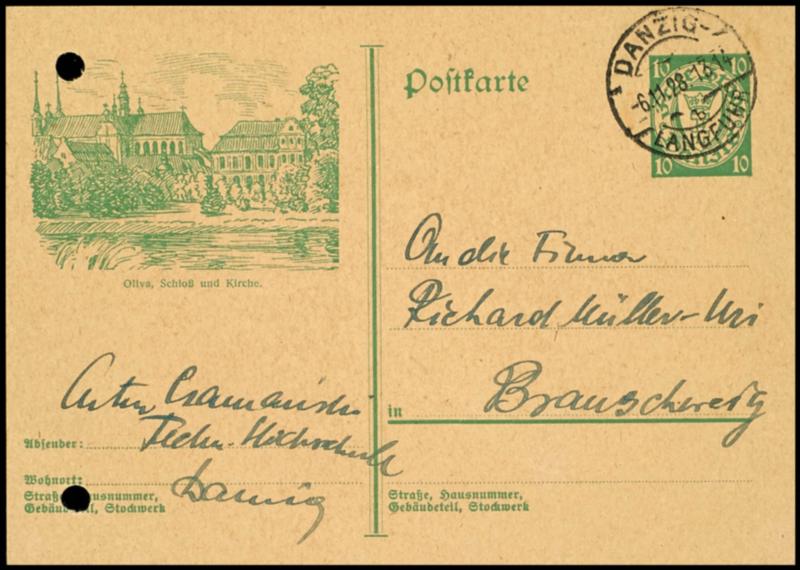 Postkarte
DANZIG-
6.11.28.13
LANGFUHR
10 10
10 10
Oliva, Schloß und Kirche.
An die Firma
Richard Müller-Uri
in Braunschweig
Techn. Hochschule
Absender:
Danzig
Wohnort:
Straße, Hausnummer,
Gebäudeteil, Stockwerk
Straße, Hausnummer,
Gebäudeteil, Stockwerk